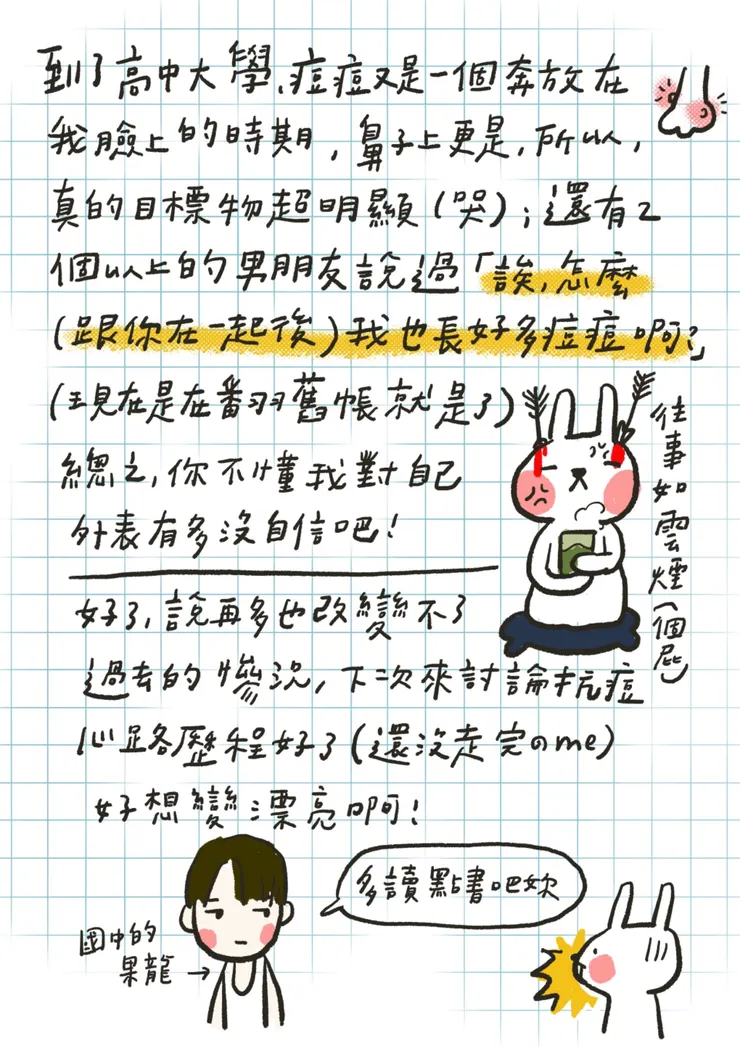 到了高中大學、痘痘又是一個奔放在
我臉上的時期，鼻子上更是，所以，
真的目標物超明顯（哭）；還有2
個以上的男朋友說過「誒，怎麼
（跟你在一起後）我也長好多痘痘啊？」
（現在是在翻舊帳就是了）
總之，你不懂我對自己
外表有多沒自信吧！
往事如雲煙（個屁）
好了，說再多也改變不了
過去的慘況，下次來討論抗痘
心路歷程好了（還沒走完のme）
好想變漂亮啊！
多讀點書吧妳
國中的
果龍→